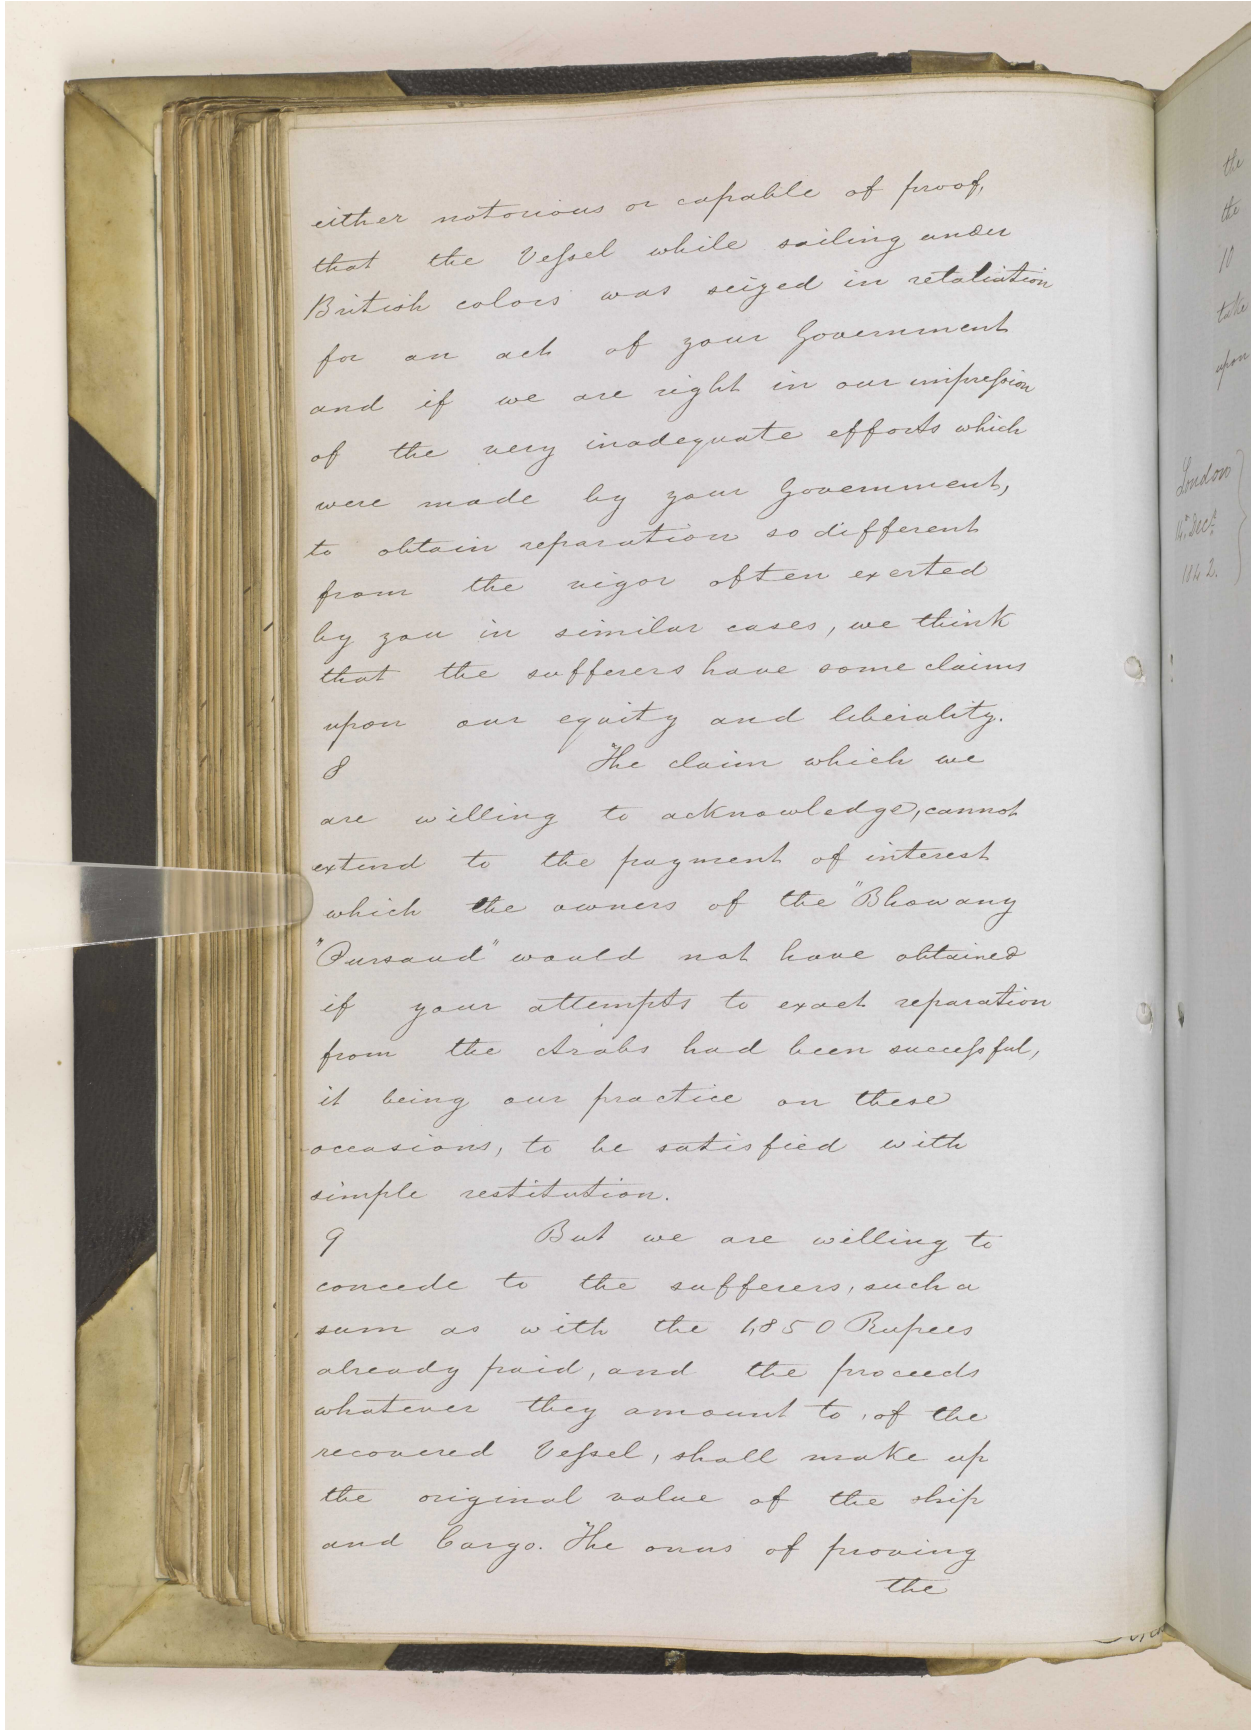 either notorious or capable of proof,
that the Vessel while sailing under
British colors was seized in retaliation
for an act of your Government
and if we are right in our impression
of the very inadequate efforts which
were made by your Government,
to obtain reparation so different
from the vigor often exerted
by you in similar cases, we think
that the sufferers have some claims
upon our equity and liberality.
8 The claim which we
are willing to acknowledge, cannot
extend to the payment of interest
which the owners of the "Bhowany
"Pursaud" would not have obtained
if your attempts to exact reparation
from the Arabs had been successful,
it being our practice on these
occasions, to be satisfied with
simple restitution.
9 But we are willing to
concede to the sufferers, such a
sum as with the 4,850 Rupees
already paid, and the proceeds
whatever they amount to, of the
recovered Vessel, shall make up
the original value of the ship
and Cargo. The onus of proving
the
the
the
10
take
upon
London
14th Decr
1842.